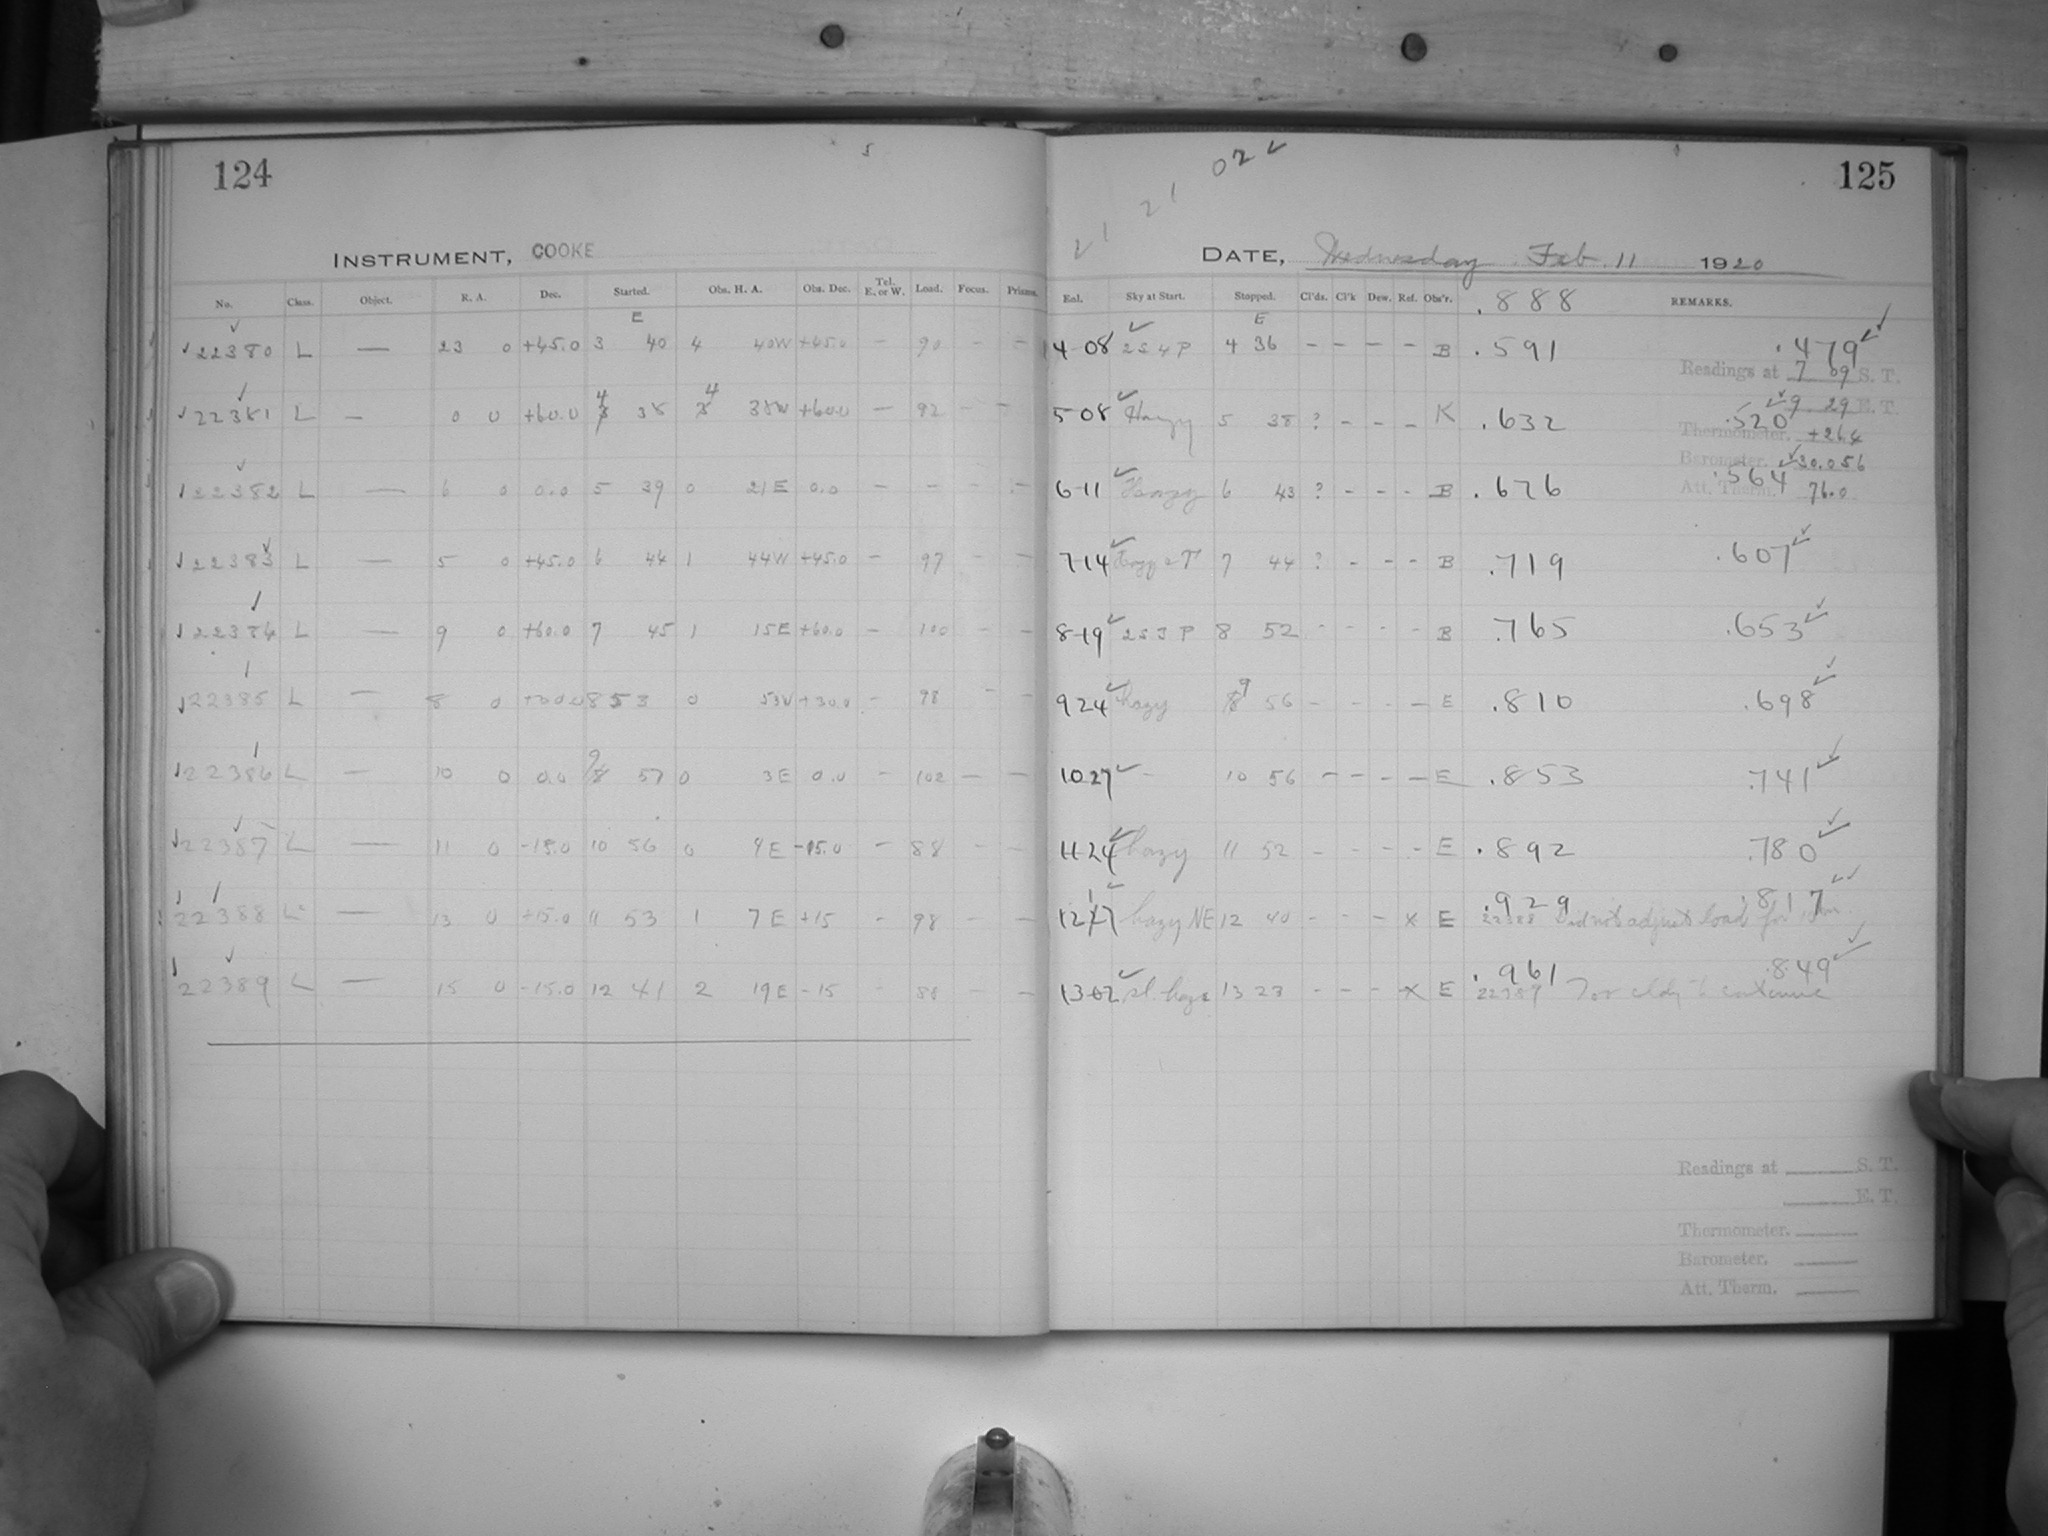 124
INSTRUMENT, COOKE
No. Class. Object. R. A. Dec. Started. Obs. H. A. Obs. Dec. Tel. E. or W. Load. Focus. Prisms.
E
22380 L — 23 0 +45.0 3 40 4 40W +45.0 - 90 - -
22381 L — 0 0 +60.0 4 38 4 38W +60.0 — 92 - -
22382 L — 6 0 0.0 5 39 0 21E 0.0 - - - -
22383 L — 5 0 +45.0 6 44 1 44W +45.0 - 97 - -
22384 L — 9 0 +60.0 7 45 1 15E +60.0 - 100 - -
22385 L — 8 0 +30.0 8 53 0 53W +30.0 - 98 - -
22386 L — 10 0 0.0 9 57 0 3E 0.0 - 102 — —
22387 L — 11 0 -15.0 10 56 0 4E -15.0 - 88 - -
22388 L — 13 0 +15.0 11 53 1 7E +15 - 98 - -
22389 L — 15 0 -15.0 12 41 2 19E -15 - 88 - —
21 21 02 ✓
125
DATE, Wednesday Feb. 11 1920
Eql. Sky at Start. Stopped. Cl'ds. Cl'k Dew. Ref. Obs'r. .888 REMARKS.
E
4-08 2S4P 4 36 - - - - B .591 .479
Readings at 7 09 S. T.
9 29 E. T.
5-08 Hazy 5 38 ? - - - K .632 .520
Thermometer. +26.4
Barometer. 30.056
6-11 Hazy 6 43 ? - - - B .676 .564
Att. Therm. 76.0
7-14 7 44 ? - - - B .719 .607
8-19 2S3P 8 52 - - - - B .765 .653
9 24 hazy 9 56 - - - - E .810 .698
10 27 - 10 56 - - - - E .853 .741
11-24 hazy 11 52 - - - - E .892 .780
12 17 hazy NE 12 40 - - - x E .929 .817
22388 Did not adjust load for
13-02 sl. haze 13 23 - - - x E .961 .849
22389 Too cldy to continue
Readings at S. T.
E. T.
Thermometer.
Barometer.
Att. Therm.